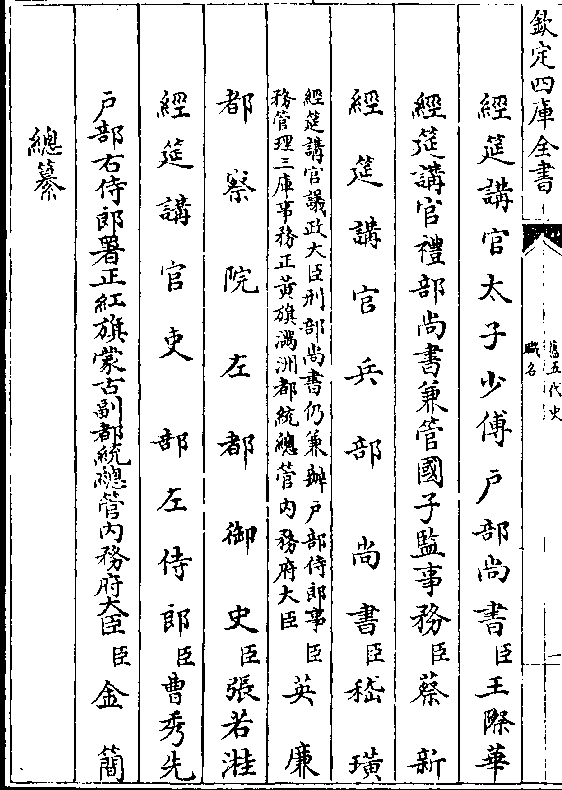 欽定四庫全書
舊五代史
職名
一
經筵講官太子少傅户部尚書臣王際華
經筵講官禮部尚書兼管國子監事務臣蔡新
經筵講官兵部尚書臣嵇璜
經筵講官議政大臣刑部尚書仍兼辦户部侍郎事
務管理三庫事務正黃旗滿洲都統總管内務府大臣
臣英廉
都察院左都御史臣張若溎
經筵講官吏部左侍郎臣曹秀先
户部右侍郎署正紅旗蒙古副都統總管内務府大臣臣金簡
總纂